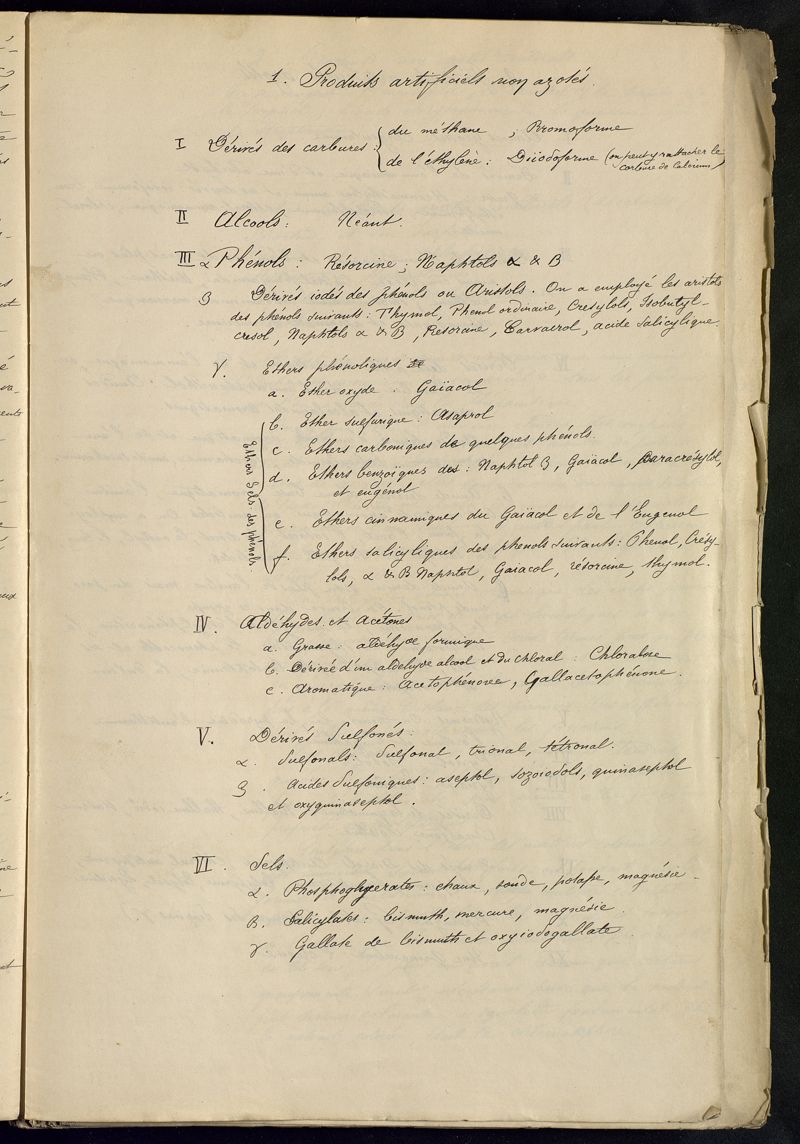 1. Produits artificiels non azotés.
I Dérivés des carbures : du méthane , Bromoforme
de l'éthylène : Diiodoforme (on peut y rattacher le
carbure de Calcium)
II Alcools : Néant.
III α Phénols : Résorcine ; Naphtols α & B
β Dérivés iodés des phénols ou Aristols. On a employé les aristols
des phénols suivants : Thymol, Phenol ordinaire, Cresylols, Isobutyl-
cresol, Naphtols α & B, Resorcine, Carvacrol, acide Salicylique.
γ. Ethers phénoliques
a. Ether oxyde . Gaïacol
Ethers Sels des phénols.
b. Ether sulfurique : Asaprol
c. Ethers carboniques de quelques phénols.
d. Ethers benzoïques des : Naphtol B, Gaïacol, Paracrésylol,
et eugénol
e. Ethers cinnamiques du Gaïacol et de l'Eugenol
f. Ethers salicyliques des phenols suivants : Phenol, Crésy-
lols, α & B Naphtol, Gaïacol, résorcine, thymol.
IV. Aldéhydes et Acétones
a. Grasse : aldéhyde formique
b. Dérivée d'un aldéhyde alcool et du Chloral : Chloralose
c. Aromatique : Acetophénone, Gallacetophénone.
V. Dérivés Sulfonés :
α. Sulfonals : Sulfonal, trional, tétronal.
β. Acides Sulfoniques : aseptol, sozoiodols, quinaseptol
et oxyquinaseptol.
VI. Sels.
α. Phosphoglycerates : chaux, soude, potasse, magnésie.
B. Salicylates : bismuth, mercure, magnésie.
γ. Gallate de bismuth et oxyiodogallate.